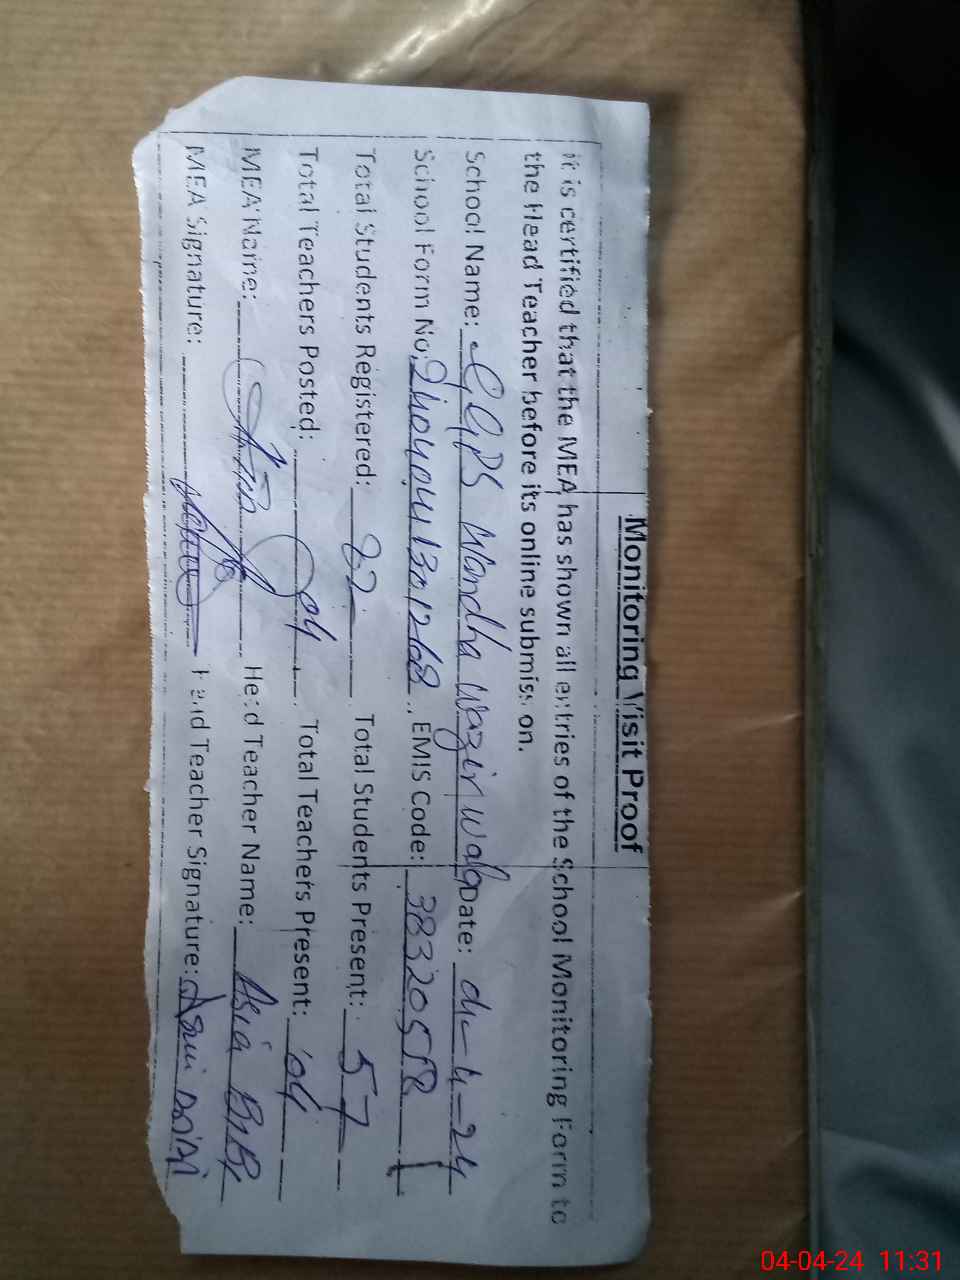 Monitoring Visit Proof
it is certified that the MEA has shown all entries of the School Monitoring Form to
the Head Teacher before its online submission.
School Name: GGPS Wandha Wazir Wala Date: 04-4-24
School Form No: EMIS Code:
Total Students Registered: 82 Total Students Present: 57
Total Teachers Posted: 04 Total Teachers Present: 04
MEA Name: Head Teacher Name: Asia BiBi
MEA Signature: Head Teacher Signature: Asia BiBi
04-04-24 11:31